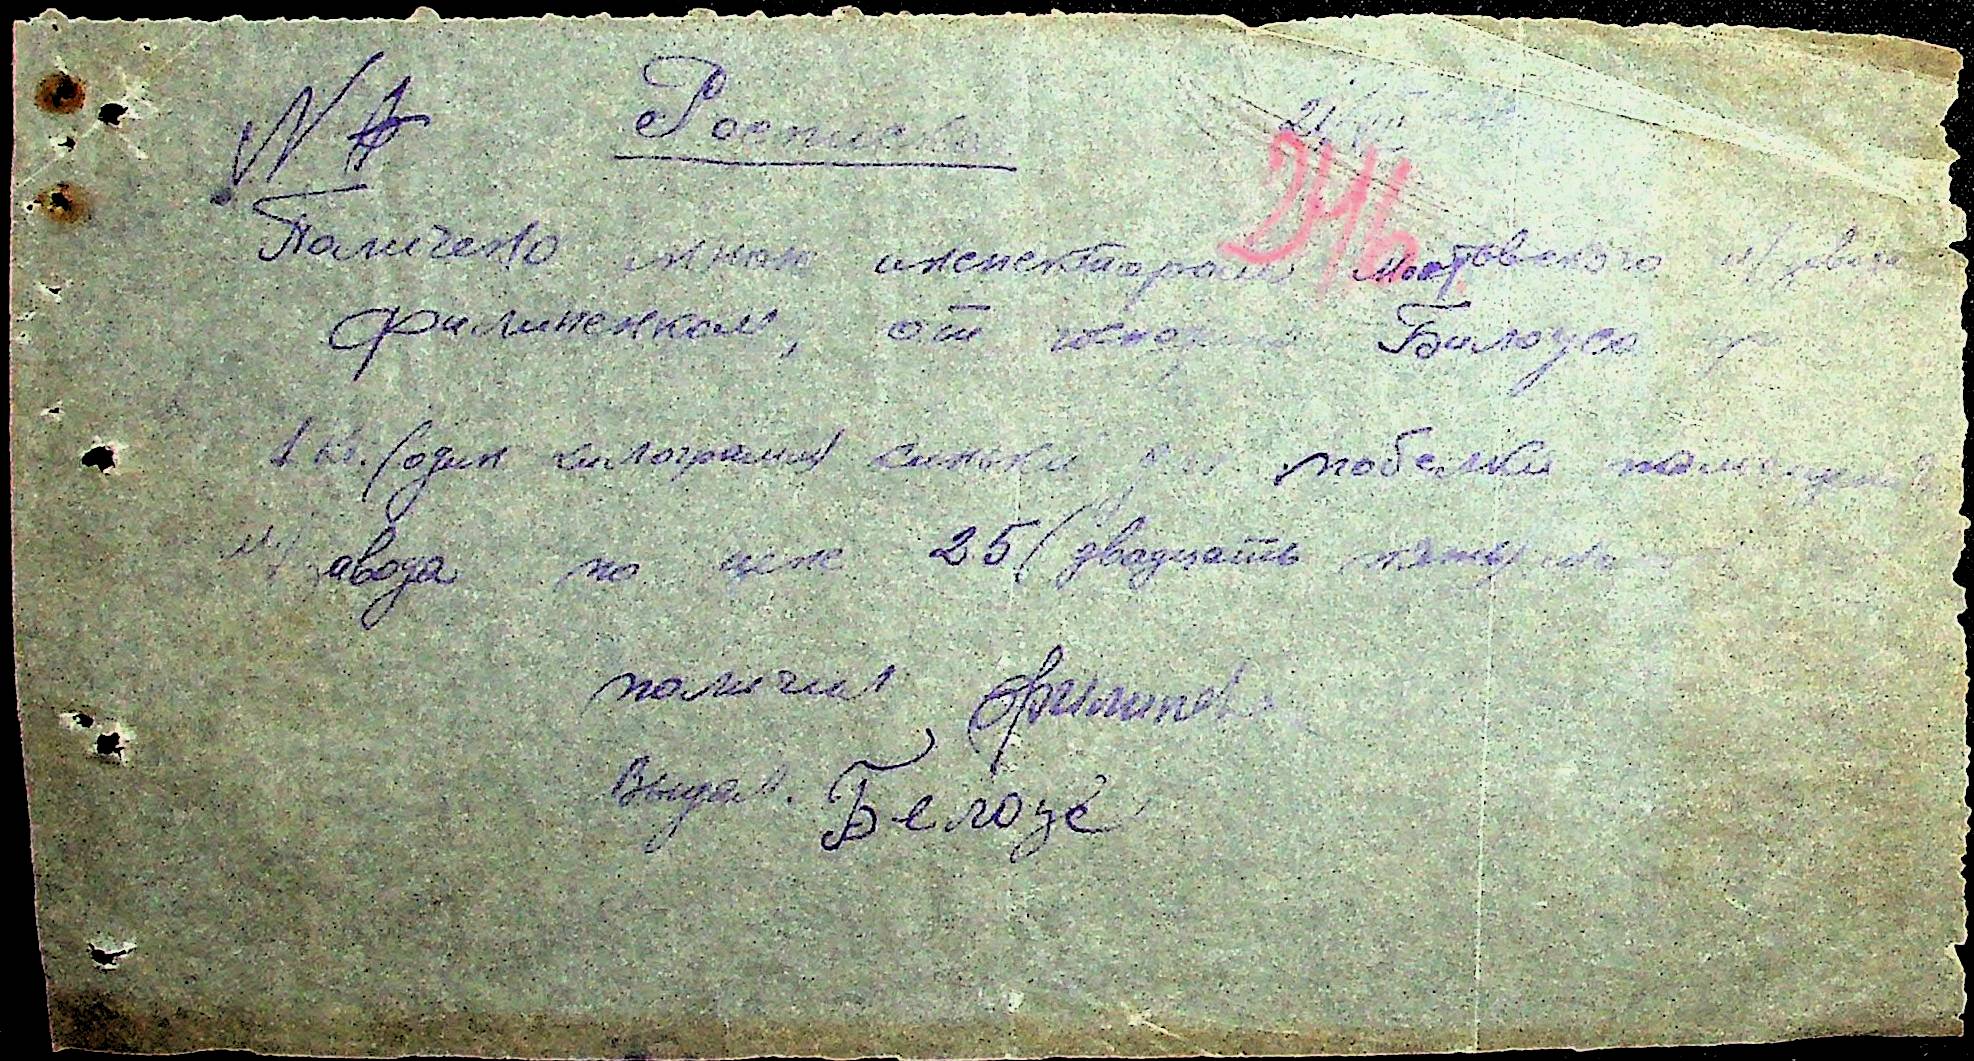 N 4 Росписка
246
Палучено мною инспектором Мостовского м/завода
Филипенком, от Билоуса
1 кг. (один килограмм) синьки для побелки помещений
м/завода по цене 25 (двадцать пять)
палучил Филипен
Выдал. Белоус